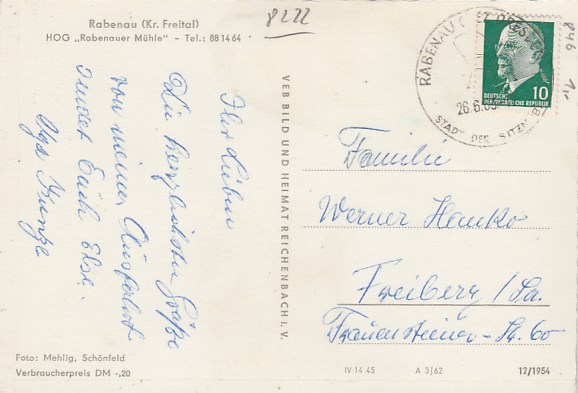 Rabenau (Kr. Freital)
HOG „Rabenauer Mühle" - Tel.: 88 14 64
8222
Ihr Lieben
Die herzlichsten Grüße
von meiner Ausfahrt
sendet Euch Else.
Kunze
VEB BILD UND HEIMAT REICHENBACH I. V.
RABENAU
26.6.
STADT DER
10
DEUTSCHE
DEMOKRATISCHE REPUBLIK
846
Familie
Werner Hanko
Freiberg / Sa.
Frauensteiner-Str. 60
Foto: Mehlig, Schönfeld
Verbraucherpreis DM -,20
IV-14 45
A 3/62
12/1954